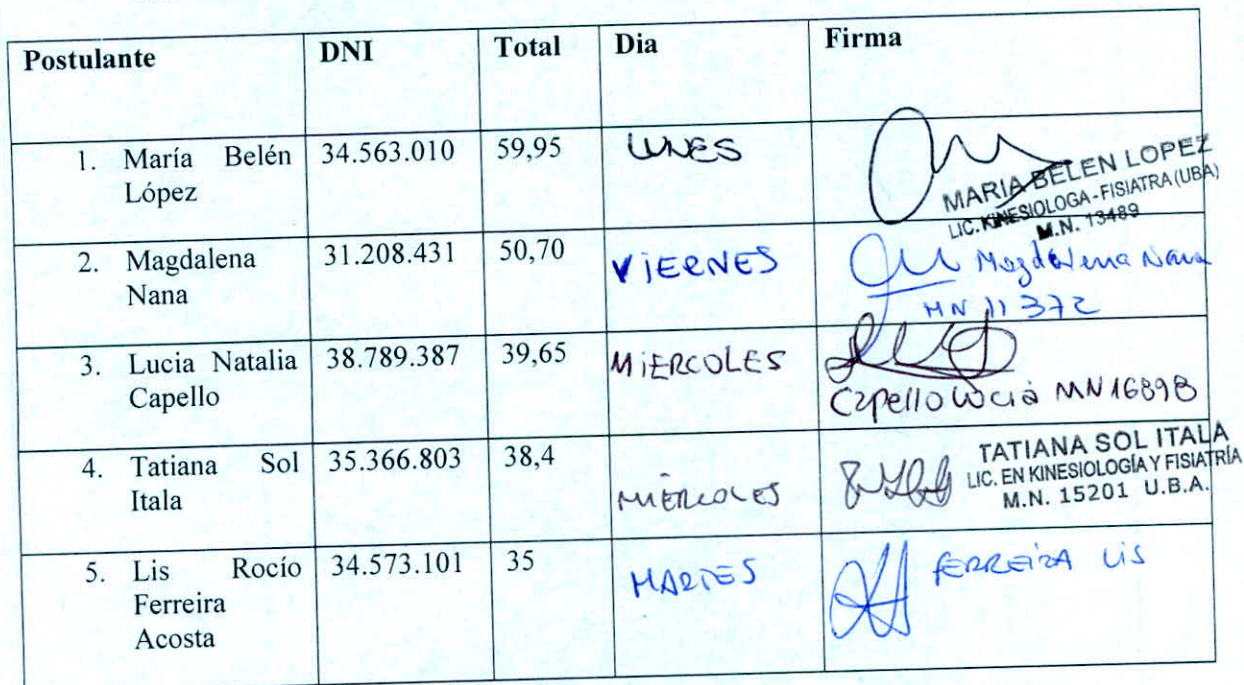 Postulante DNI Total Dia Firma
1. María Belén 34.563.010 59,95 LUNES
López
MARIA BELEN LOPEZ
LIC. KINESIOLOGA - FISIATRA (UBA)
M.N. 13489
2. Magdalena 31.208.431 50,70 VIERNES Magdalena Nana
Nana
MN 11372
3. Lucia Natalia 38.789.387 39,65 MIERCOLES
Capello
Capello Lucía MN 16898
4. Tatiana Sol 35.366.803 38,4 MIERCOLES
Itala
TATIANA SOL ITALA
LIC. EN KINESIOLOGÍA Y FISIATRÍA
M.N. 15201 U.B.A.
5. Lis Rocío 34.573.101 35 MARTES FERREIRA LIS
Ferreira
Acosta